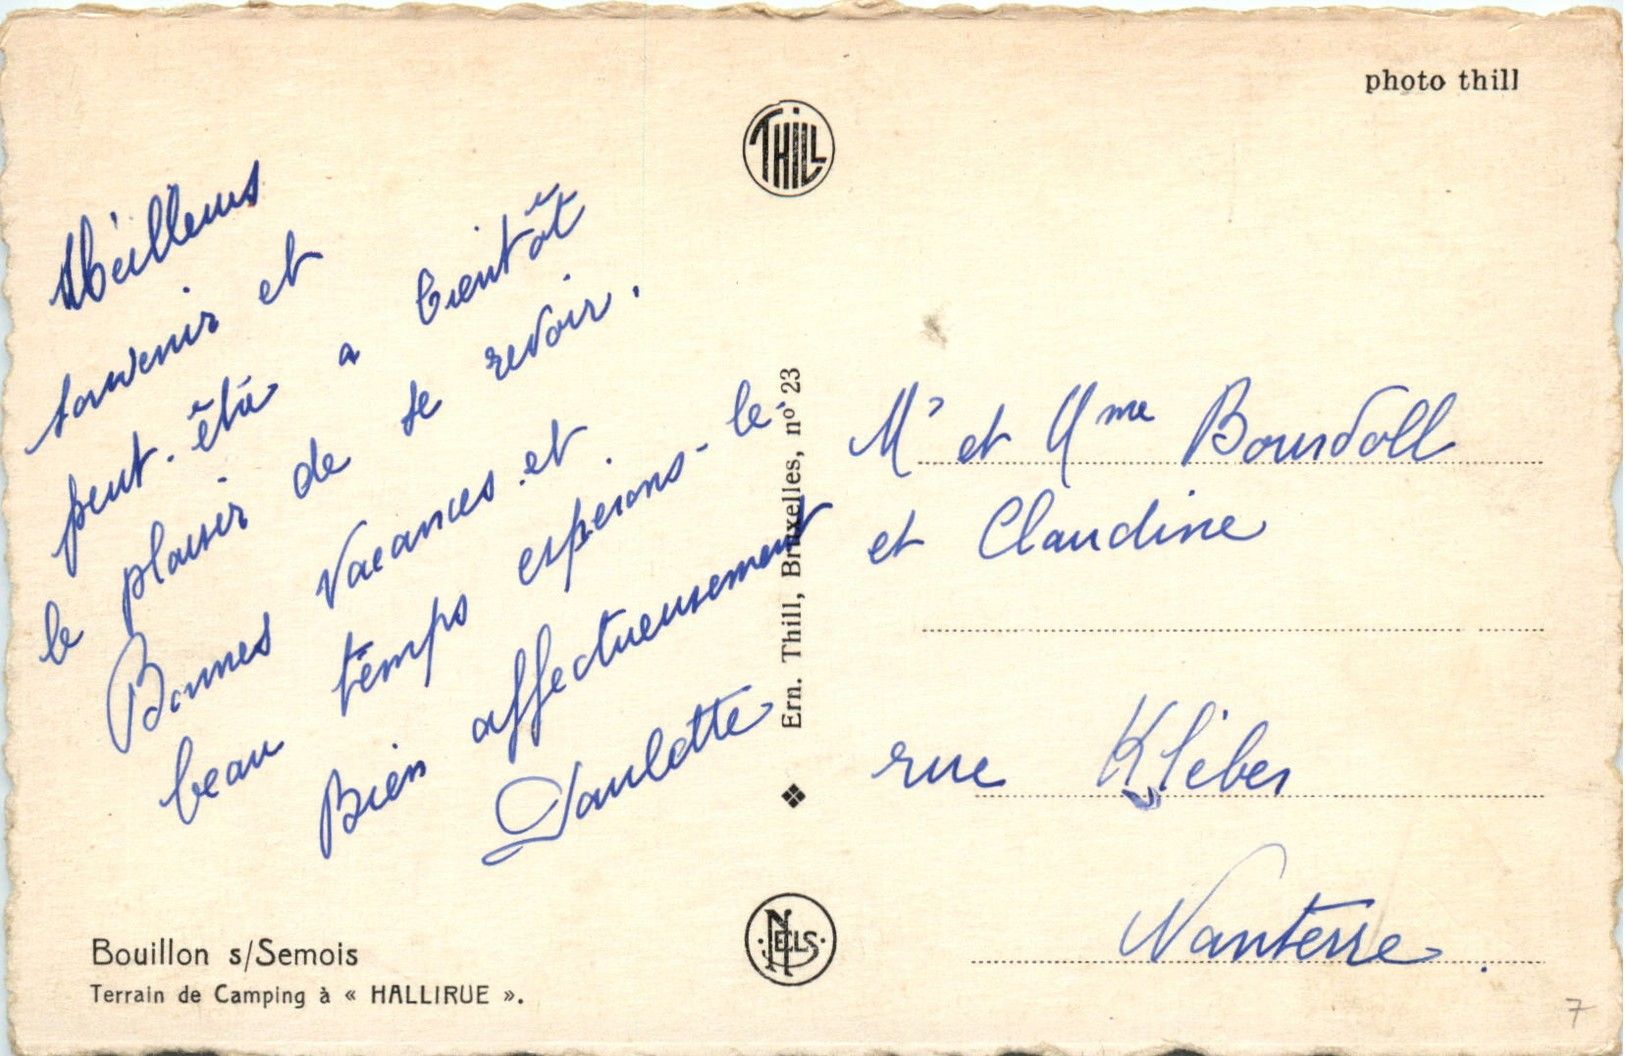 photo thill
THILL
Meilleurs
souvenir et
peut-être a bientôt
le plaisir de se revoir.
Bonnes Vacances et
beau temps esperons-le
Bien affectueusement
Paulette
Ern. Thill, Bruxelles, nº 23
NELS
Bouillon s/Semois
Terrain de Camping à « HALLIRUE ».
Mr et Mme Bourdoll
et Claudine
rue Kléber
Nanterre.
7